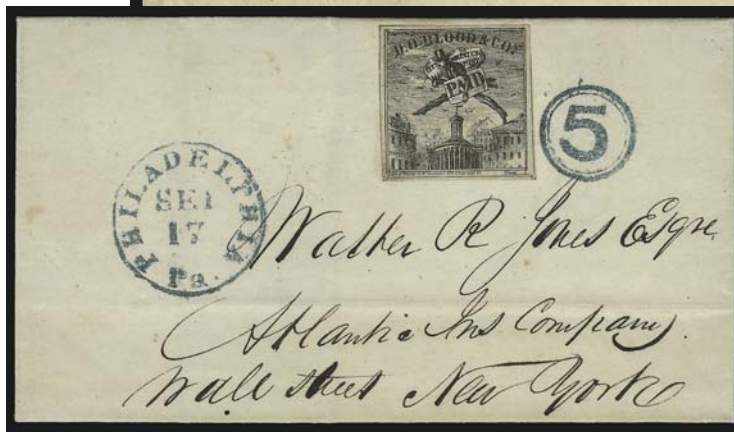 D.O. BLOOD & CO'S
PAID
5
PHILADELPHIA
SEP
17
Pa.
Walter R Jones Esqre.
Atlantic Ins Company.
Wall street New York